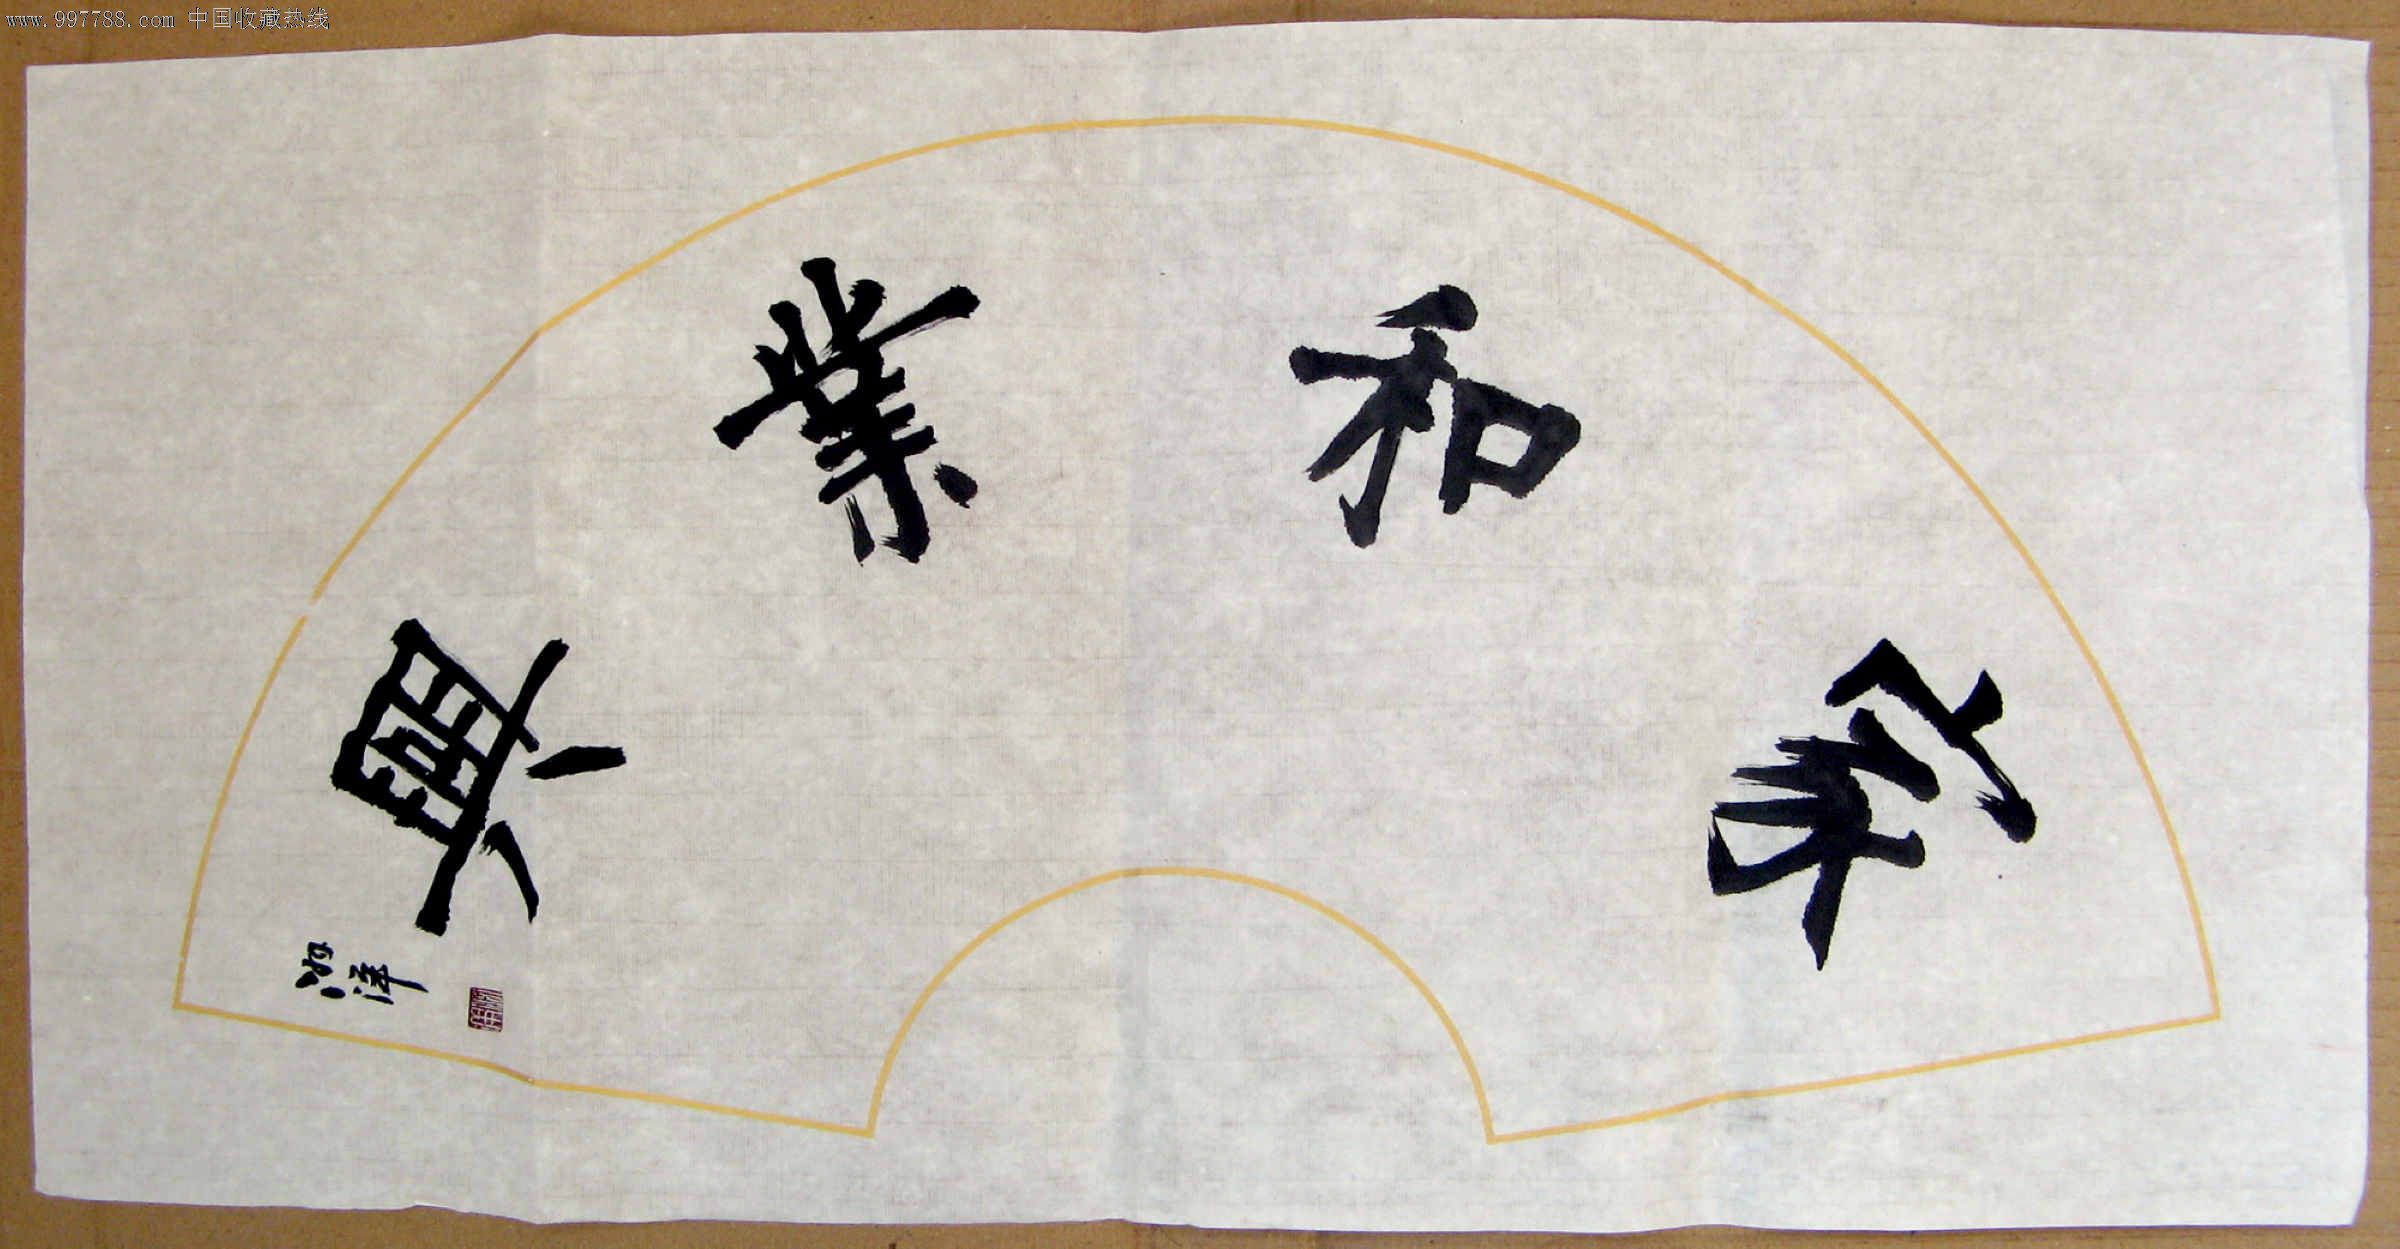 www.997788.com 中国收藏热线
家和業興
泗洋